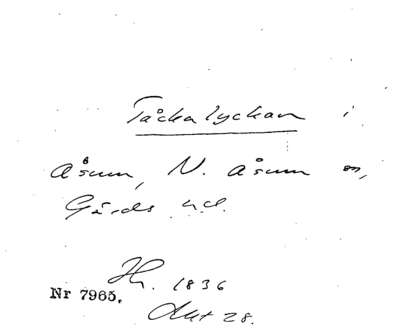 Tåckalyckan i
Åsum, N. Åsum sn,
Gärds hd.
1836
Nr 7965.
Akt 28.